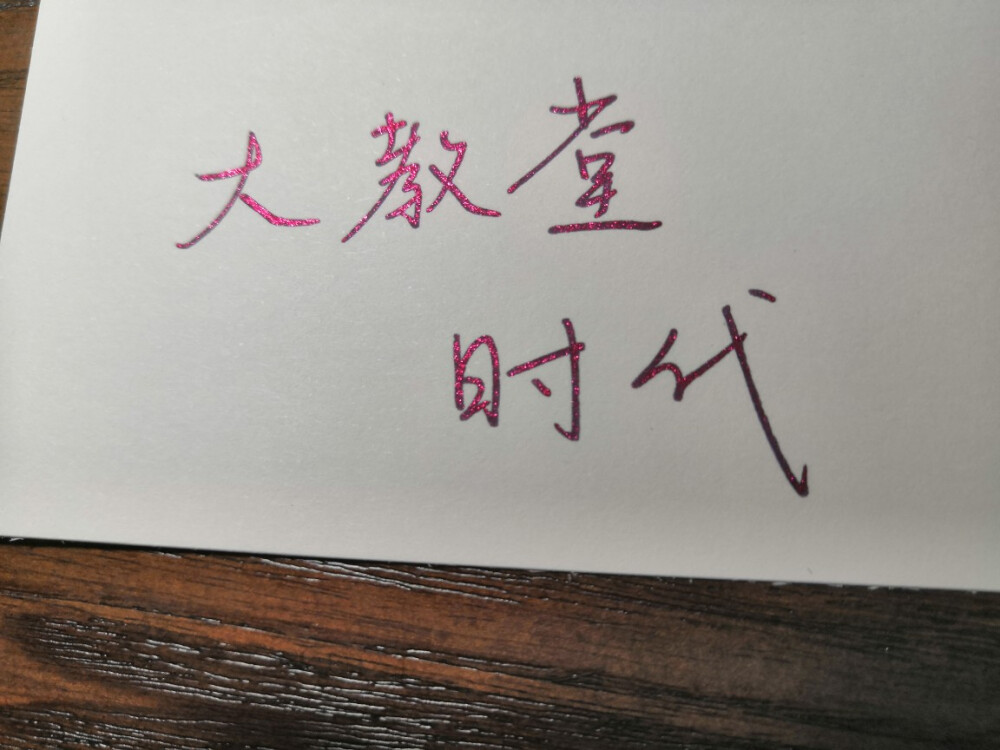 大教堂
时代